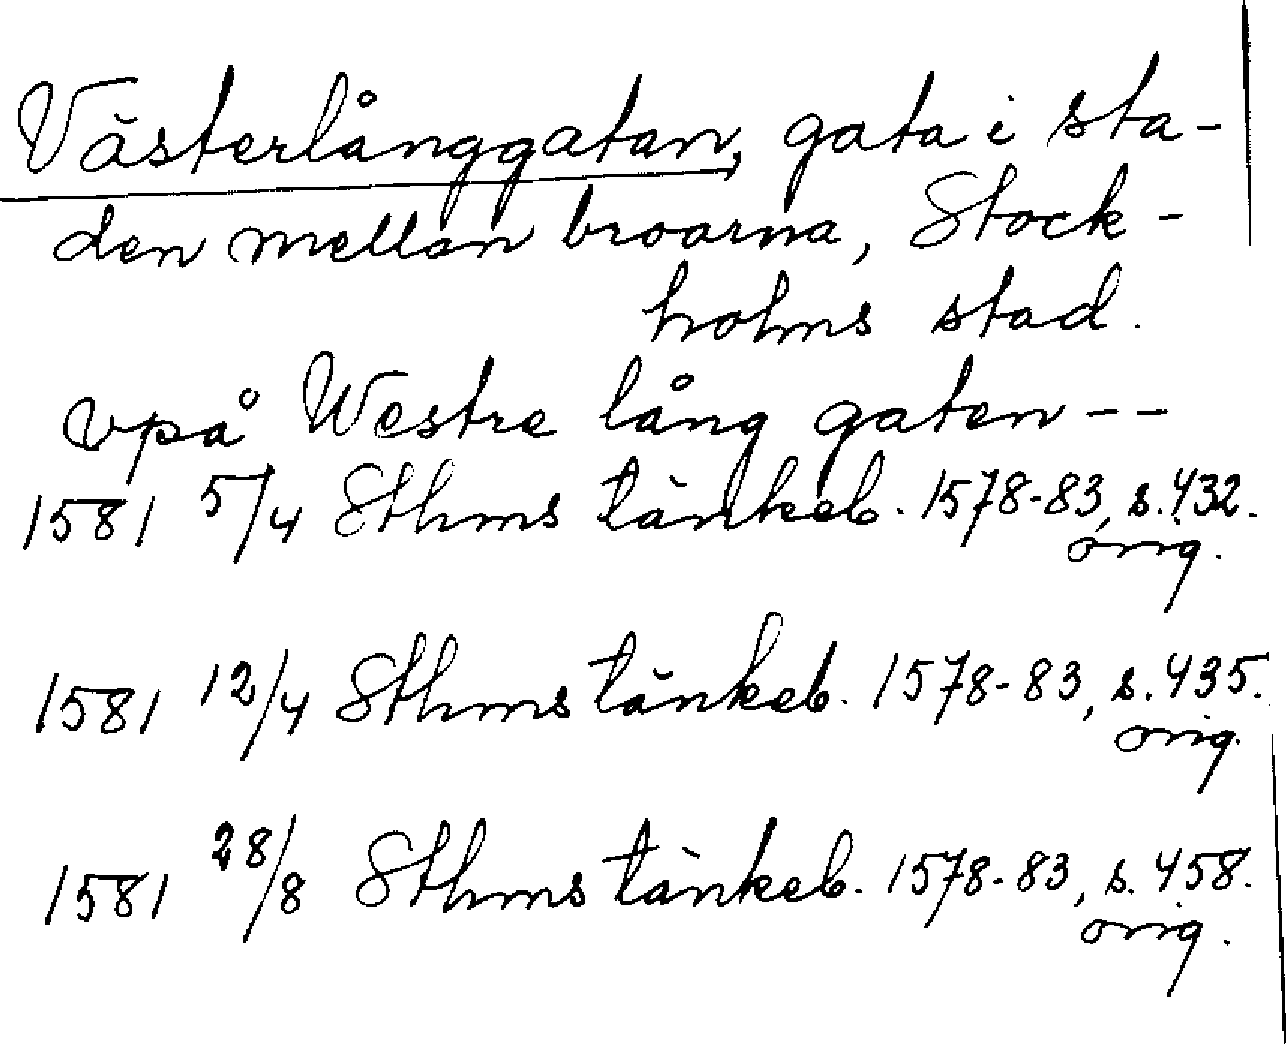 Västerlånggatan, gata i sta-
den mellan broarna, Stock-
holms stad.
vpå Westre lång gaten --
1581 5/4 Sthms tänkeb. 1578-83, s. 432.
orig.
1581 12/4 Sthms tänkeb. 1578-83, s. 435.
orig.
1581 28/8 Sthms tänkeb. 1578-83, s. 458.
orig.